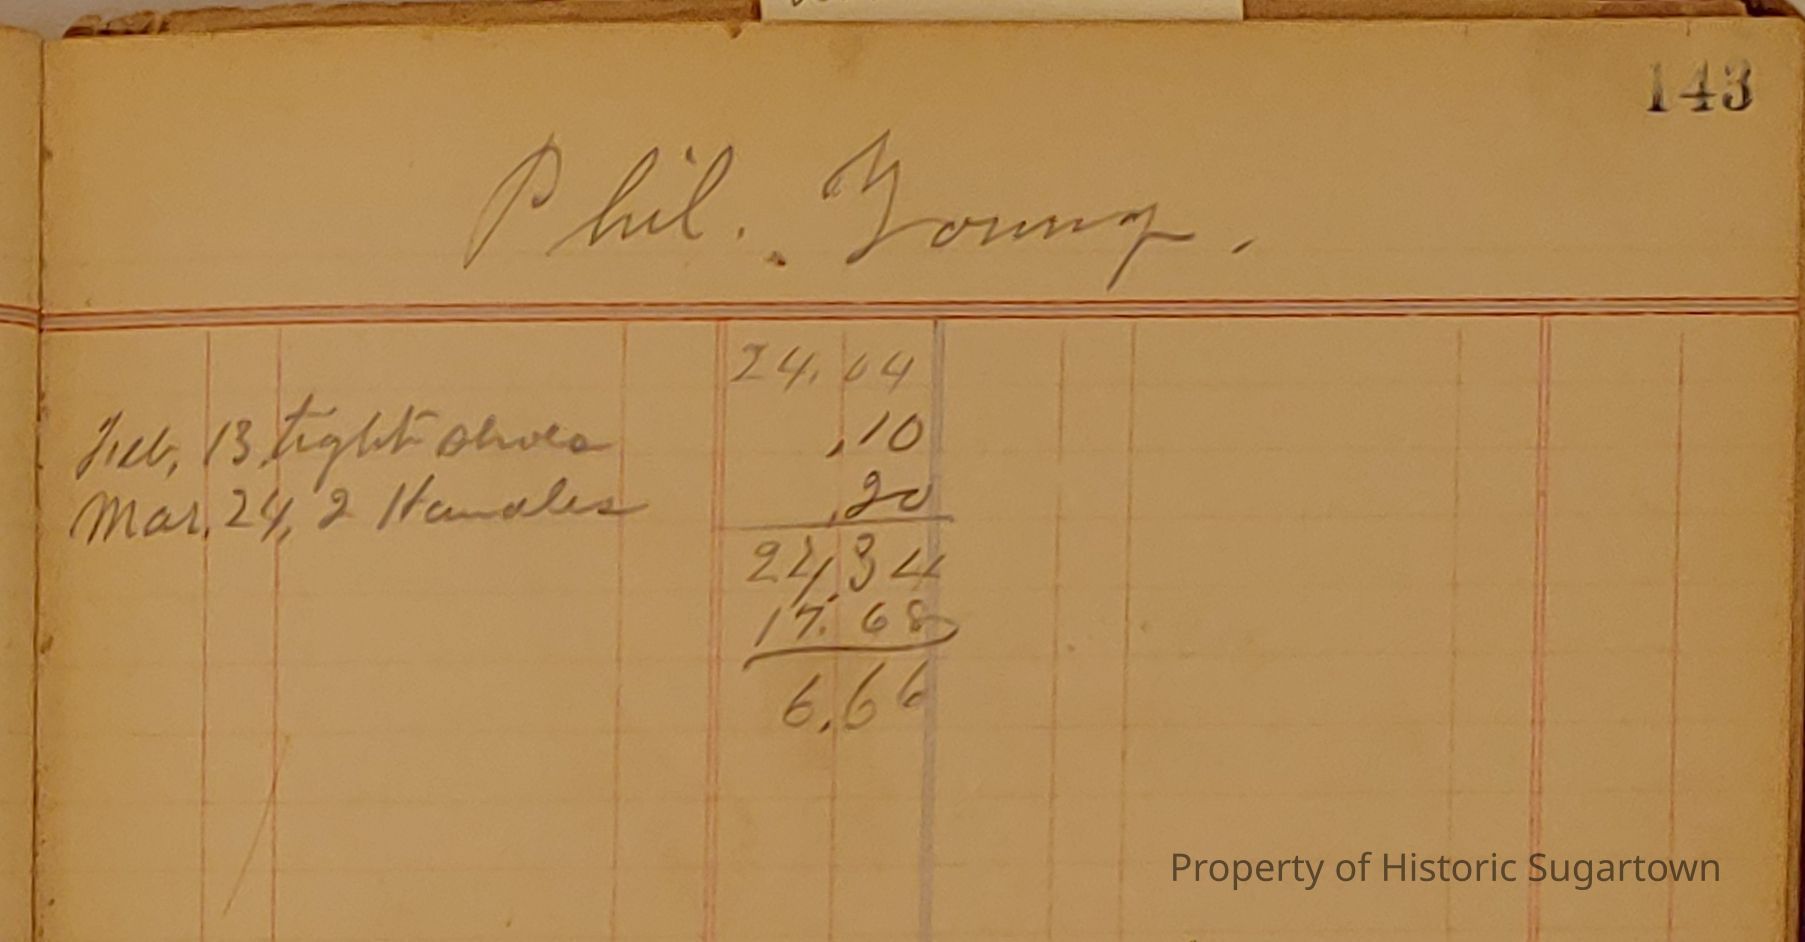 143
Phil. Young.
24.04
Feb, 13, tight shoes ,10
Mar. 24, 2 Handles ,20
24,34
17.68
6.66
Property of Historic Sugartown